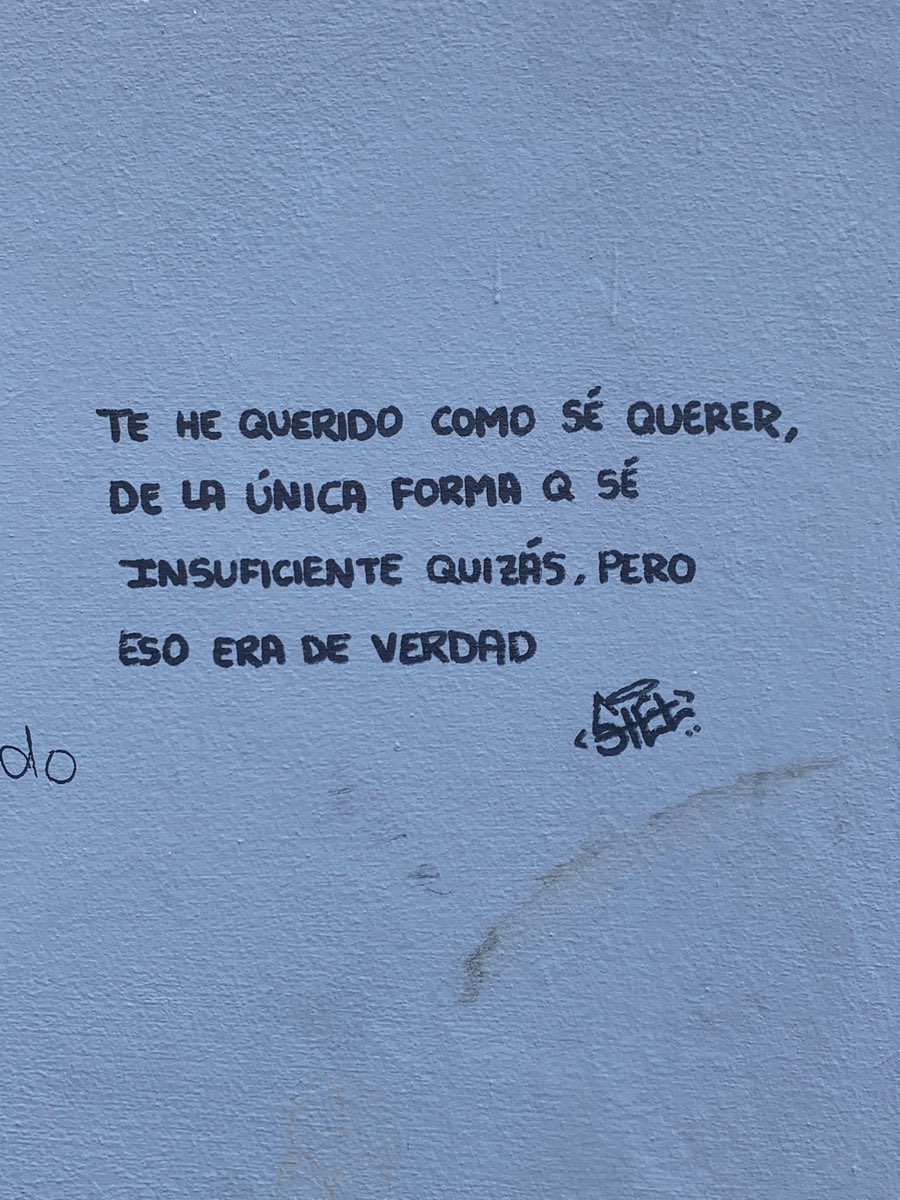 TE HE QUERIDO COMO SÉ QUERER,
DE LA ÚNICA FORMA Q SÉ
INSUFICIENTE QUIZÁS, PERO
ESO ERA DE VERDAD
do